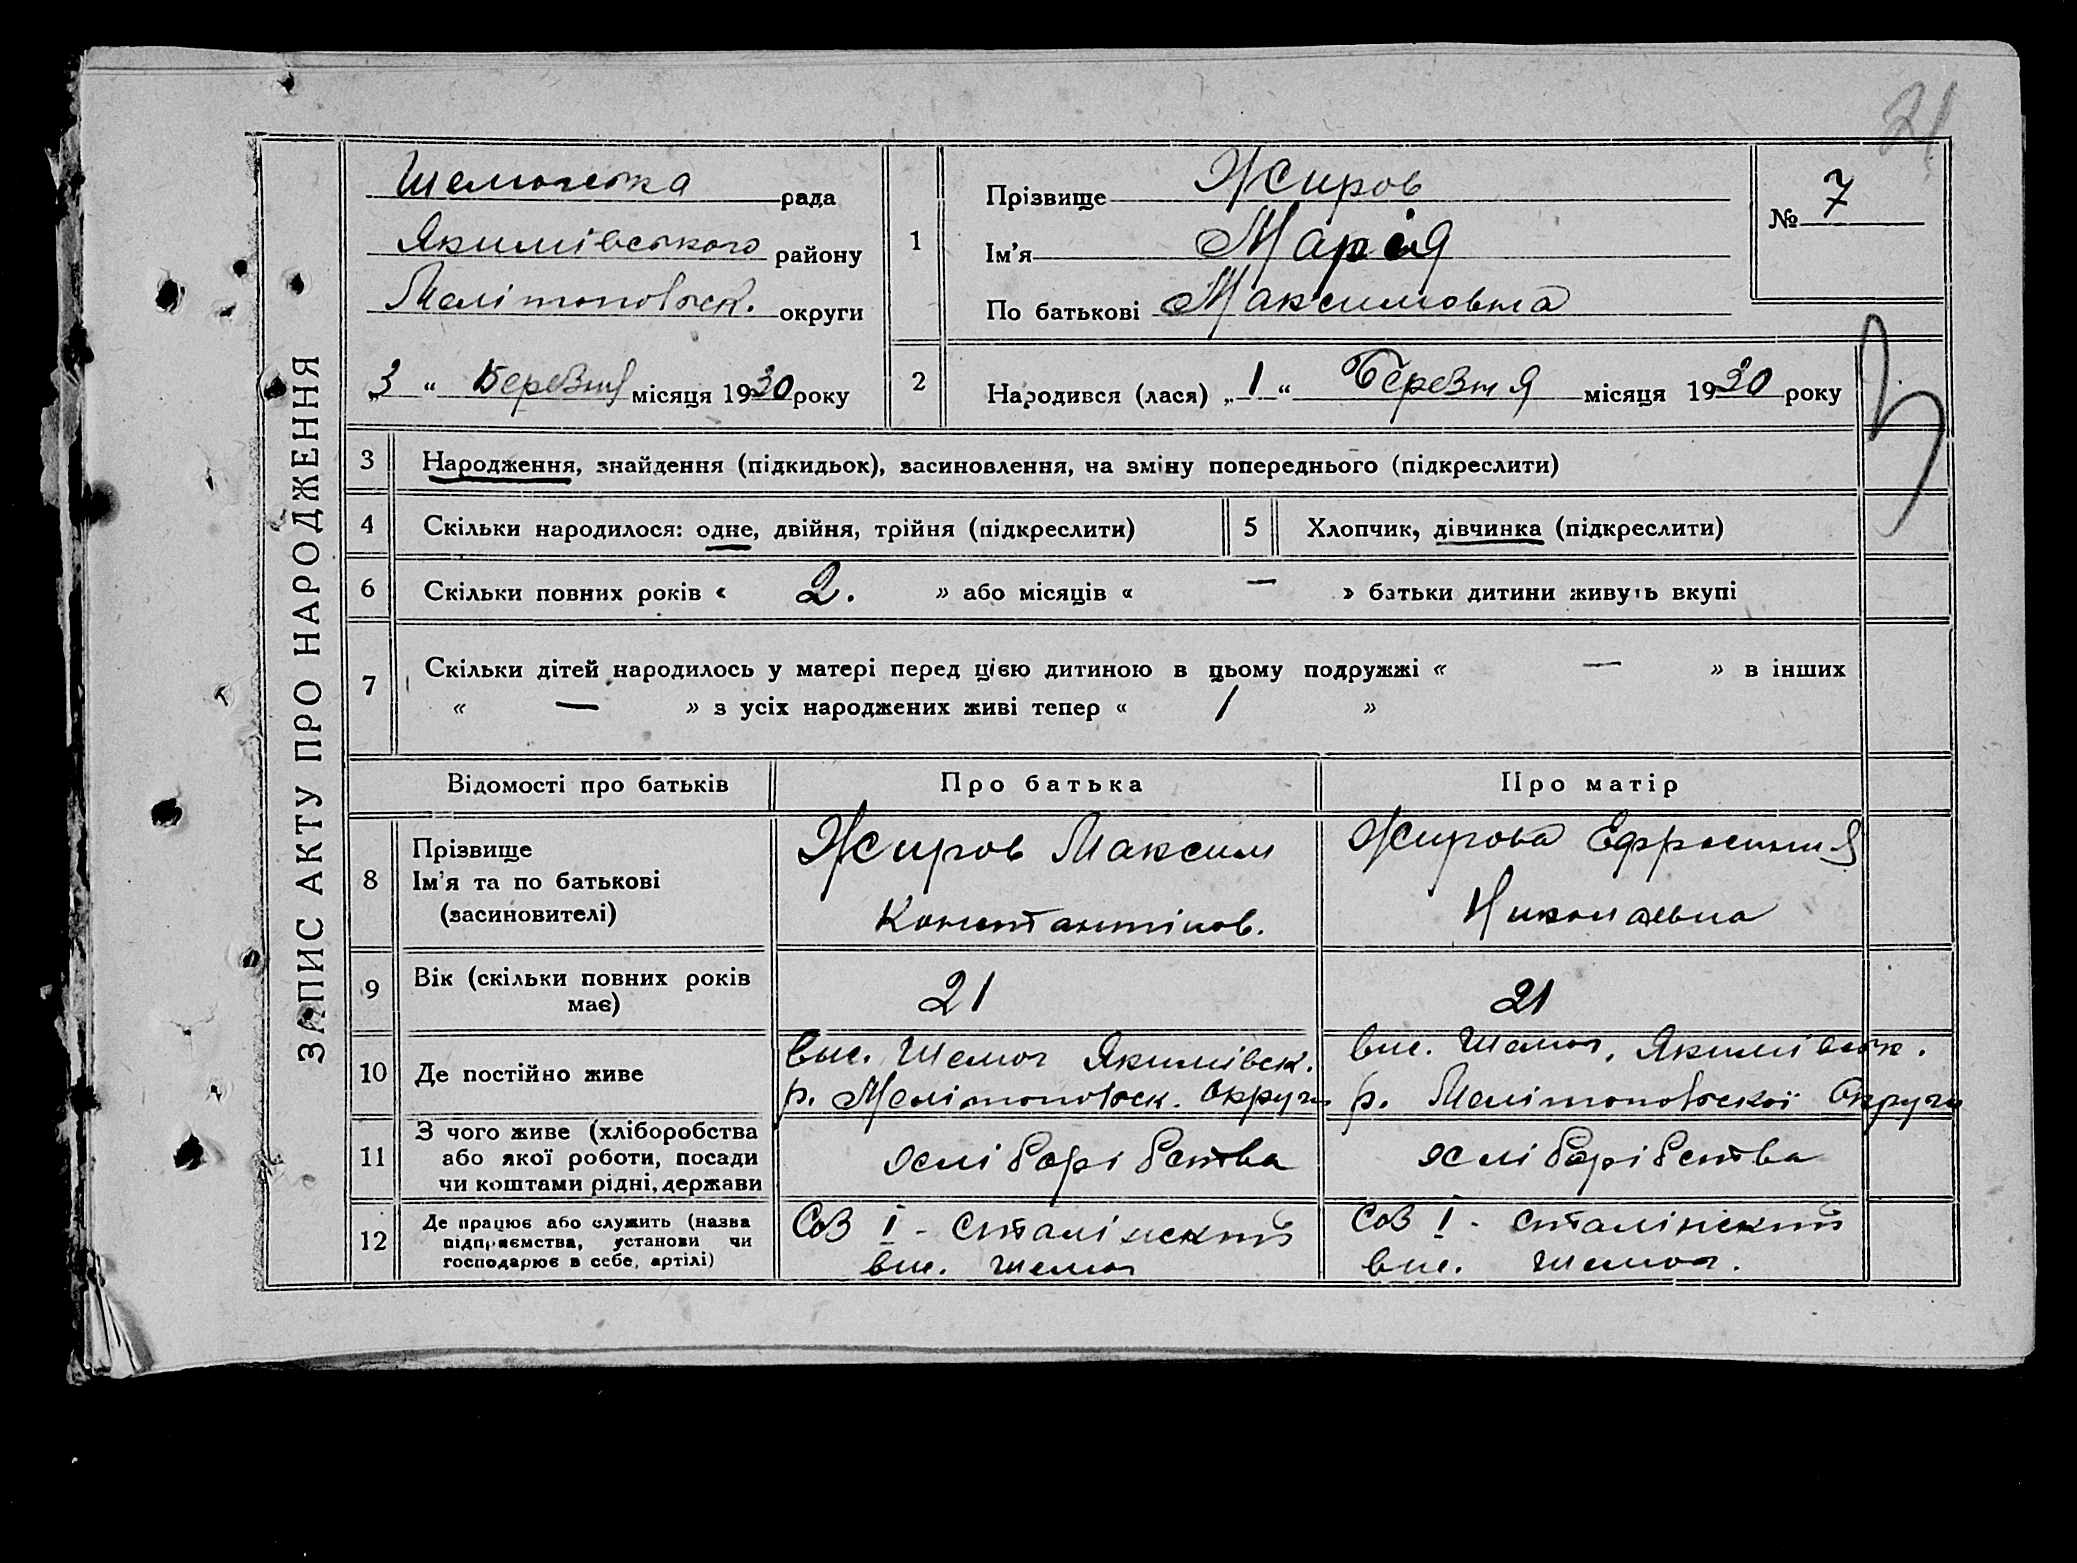 21
ЗАПИС АКТУ ПРО НАРОДЖЕННЯ
рада
Якимівського району
Мелітопольск. округи
„3“ Березня місяця 1930 року
1
Прізвище Жиров
Ім'я Марія
По батькові Максимовна
№ 7
2
Народився (лася) „1“ Березня місяця 1930 року
3 Народження, знайдення (підкидьок), засиновлення, на зміну попереднього (підкреслити)
4 Скільки народилося: одне, двійня, трійня (підкреслити)
5 Хлопчик, дівчинка (підкреслити)
6 Скільки повних років « 2. » або місяців « — » батьки дитини живуть вкупі
7 Скільки дітей народилось у матері перед цією дитиною в цьому подружжі « — » в інших
« — » з усіх народжених живі тепер « 1 »
Відомості про батьків
Про батька
Про матір
8 Прізвище
Ім'я та по батькові
(засиновителі)
Жиров Максим
Константінов.
Жирова Ефросиния
Николаевна
9 Вік (скільки повних років
має)
21
21
10 Де постійно живе
вис. Якимівск.
р. Мелітопольск. Округи
вис. Якимівськ.
р. Мелітопольскої Округи
11 З чого живе (хліборобства
або якої роботи, посади
чи коштами рідні, держави
хліборобства
хліборобства
12 Де працює або служить (назва
підприємства, установи чи
господарює в себе, артілі)
Соз І - Сталінский
вис.
Соз І - Сталінский
вис.